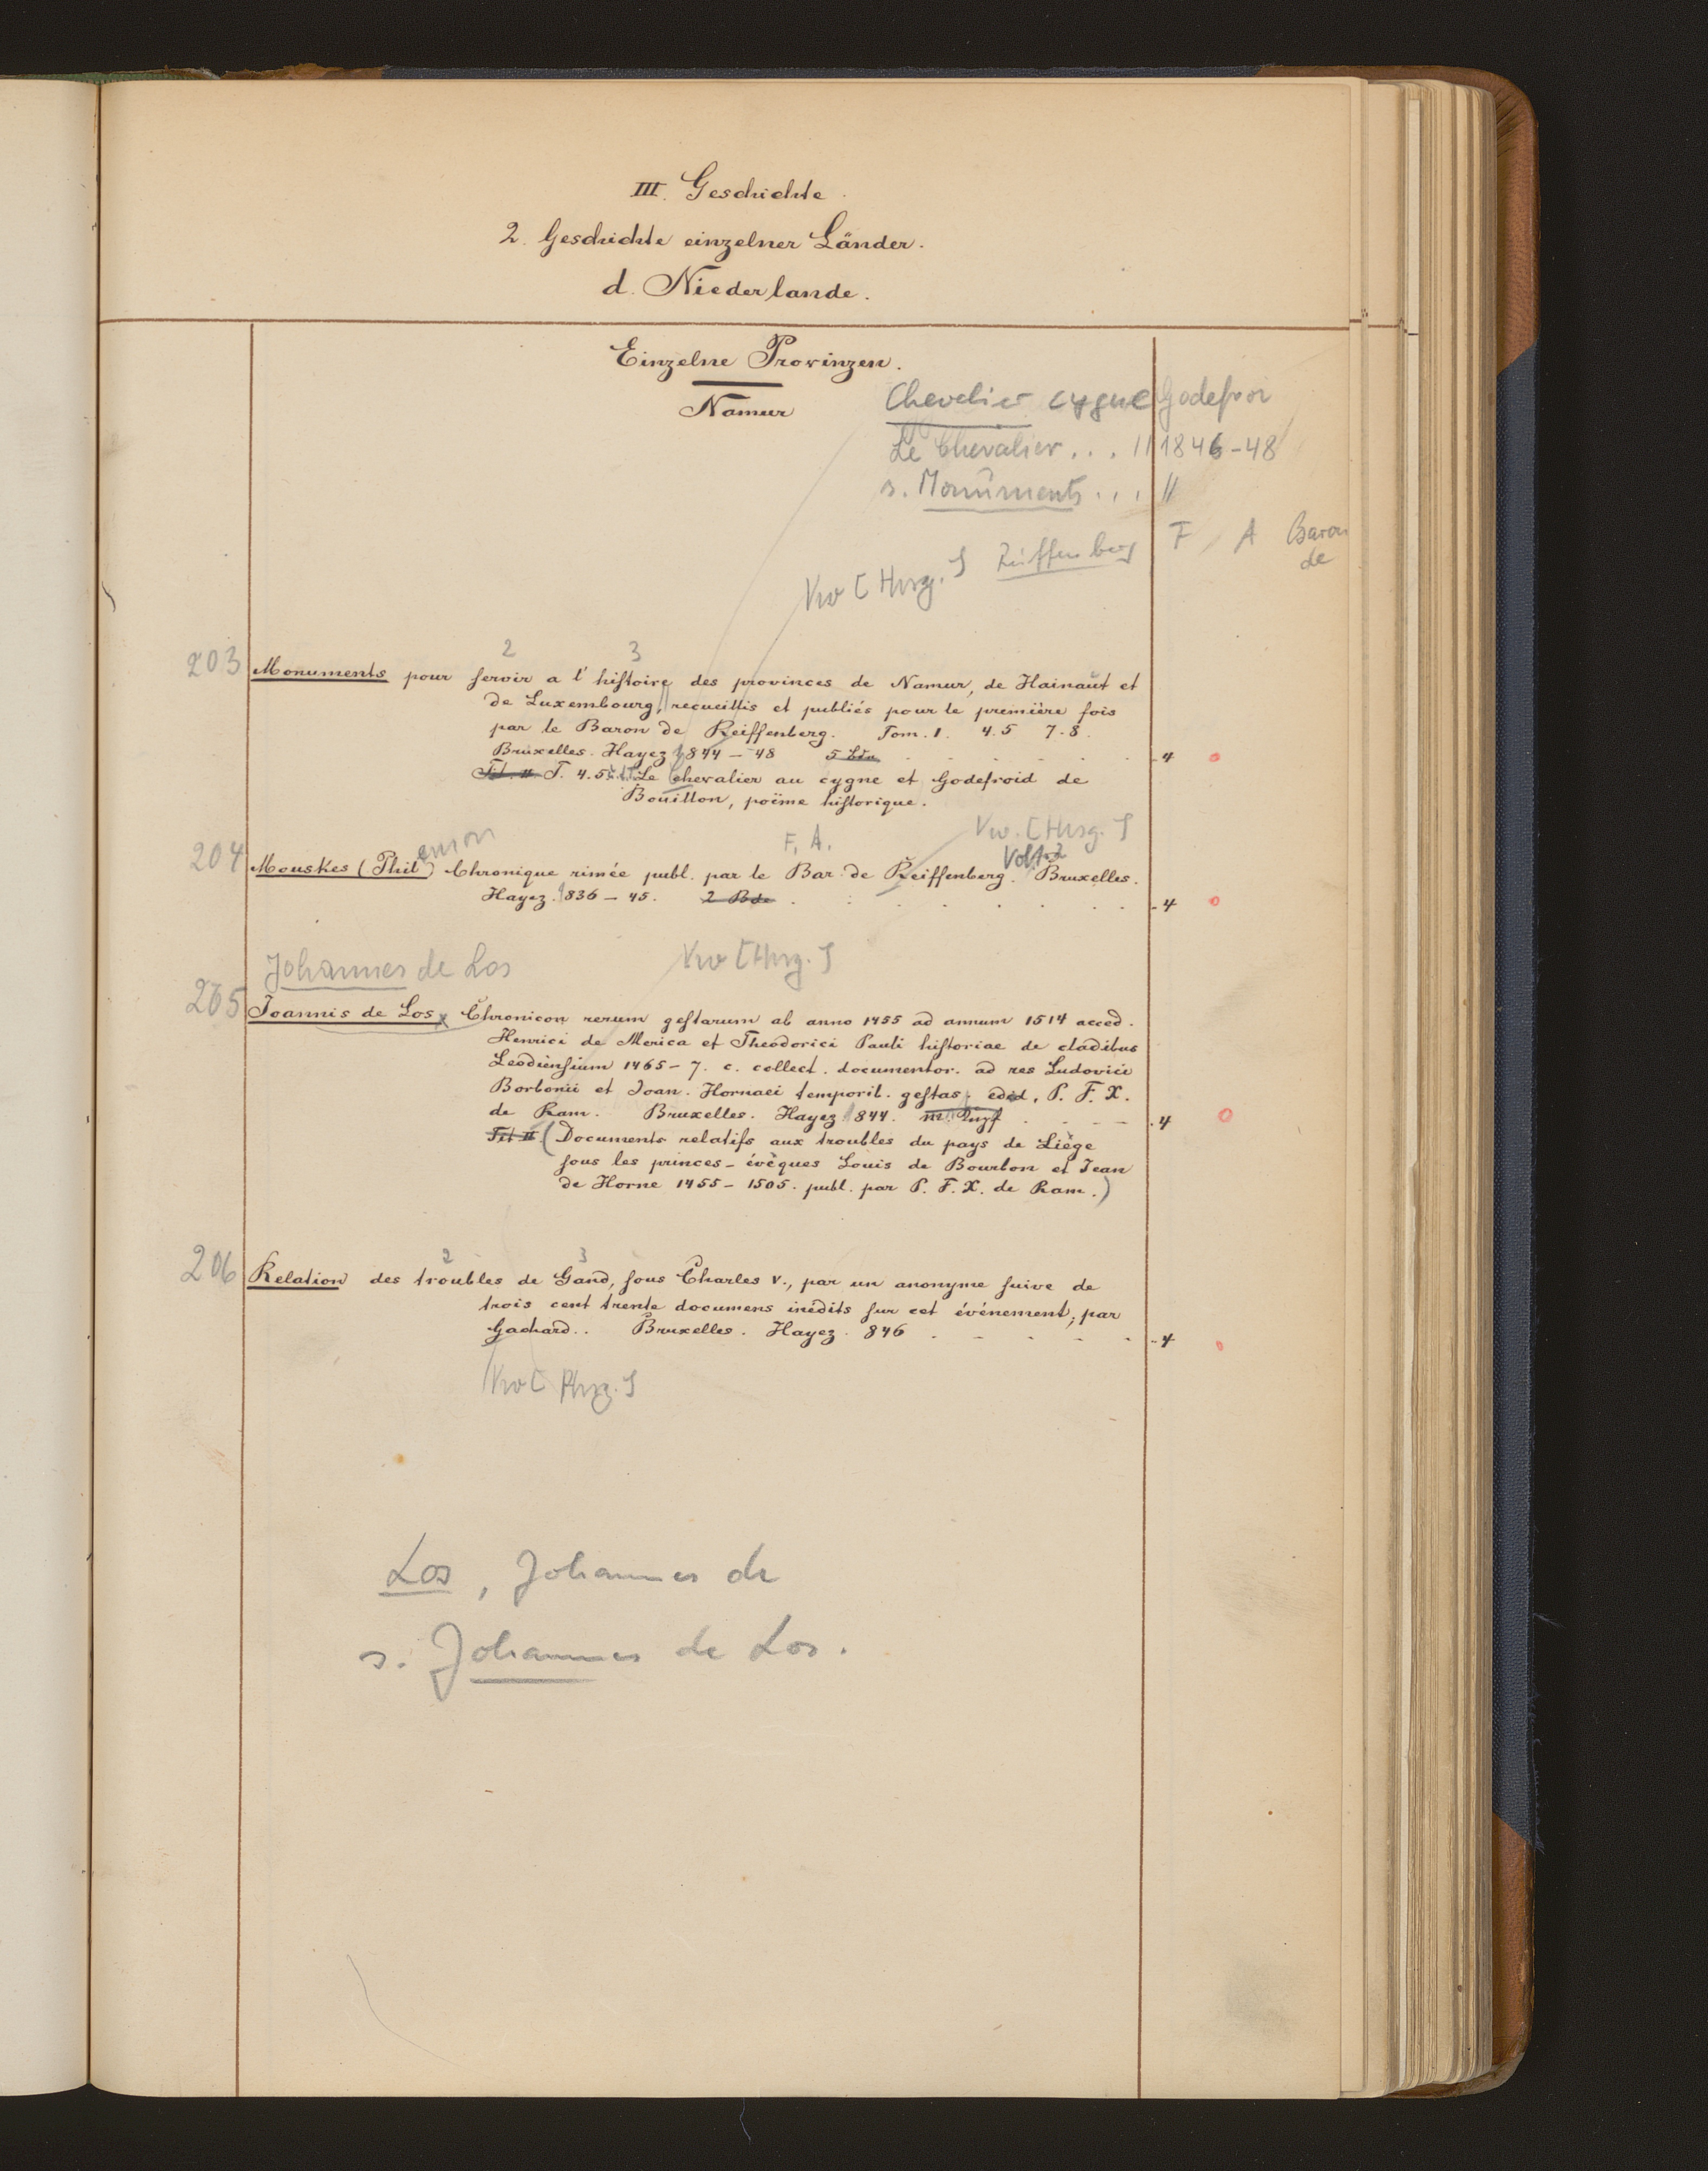 III. Geschichte.
2. Geschichte einzelner Länder.
d. Niederlande.
Einzelne Provinzen.
Namur
Chevalier cygne Godefroi
Le Chevalier . . . || 1846-48
s. Monuments . . . ||
Vw [Hrsg.] Reiffenberg F A Baron
de
2 3
203 Monuments pour servir a l'histoire des provinces de Namur, de Hainaut et
de Luxembourg, recueillis et publiés pour le première fois
par le Baron de Reiffenberg. Tom. 1. 4. 5 7. 8.
Bruxelles. Hayez 1844 – 48 5 Bde . . . . . . 4 o
Tit. II T. 4. 5 Le Chevalier au cygne et Godefroid de
Bouillon, poëme historique.
Vw. [Hrsg.]
emon F. A. Vol 1.2
204 Mouskes (Phil) Chronique rimée publ. par le Bar. de Reiffenberg. Bruxelles.
Hayez. 1836 – 45. 2 Bde . . . . . . . 4 o
Johannes de Los Vw [Hrsg.]
205 Joannis de Los, Chronicon rerum gestarum ab anno 1455 ad annum 1514 acced.
Henrici de Merica et Theodorici Pauli historiae de cladibus
Leodiensium 1465 – 7. c. collect. documentor. ad res Ludovici
Borbonii et Joan. Hornaei temporib. gestas, edid, P. F. X.
de Ram. Bruxelles. Hayez 1844. . . . . 4 o
Tit II (Documents relatifs aux troubles du pays de Liège
sous les princes-évêques Louis de Bourbon et Jean
de Horne 1455 – 1505. publ. par P. F. X. de Ram.)
2 3
206 Relation des troubles de Gand, sous Charles V., par un anonyme suive de
trois cent trente documens inédits sur cet événement, par
Gachard.. Bruxelles. Hayez. 846 . . . . . 4 o
Vw [Hrsg.]
Los, Johannes de
s. Johannes de Los.